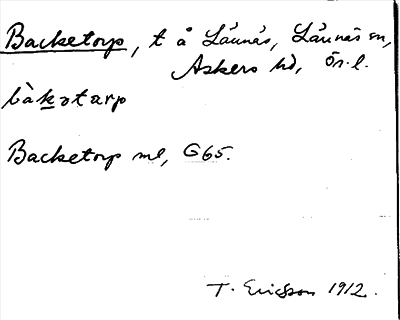 Backetorp, t å Lännäs, Lännäs sn,
Askers hd, Ör. l.
bàkətarp
Backetorp ml, G65.
T. Ericsson 1912.